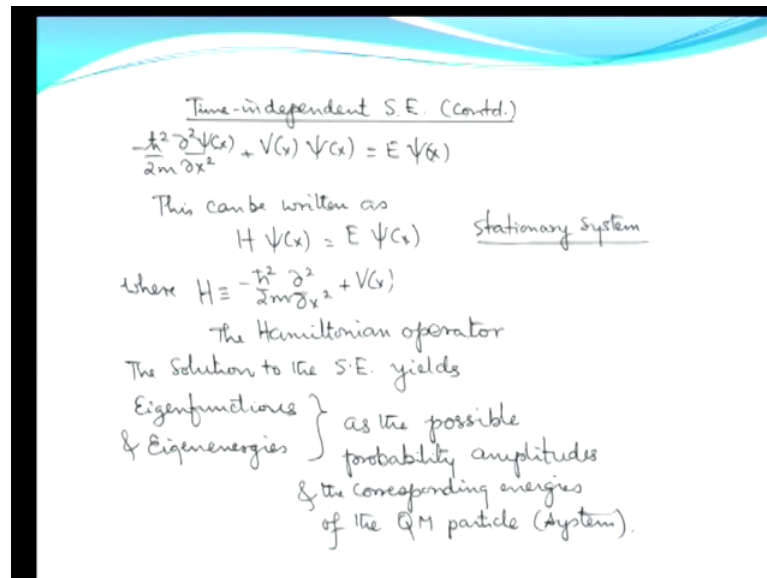 Time-independent S.E. (Contd.)
-ħ²/2m ∂²Ψ(x)/∂x² + V(x) Ψ(x) = E Ψ(x)
This can be written as
H Ψ(x) = E Ψ(x) Stationary System
where H ≡ -ħ²/2m ∂²/∂x² + V(x)
The Hamiltonian operator
The Solution to the S.E. yields
Eigenfunctions } as the possible
& Eigenenergies probability amplitudes
& the corresponding energies
of the QM particle (System).